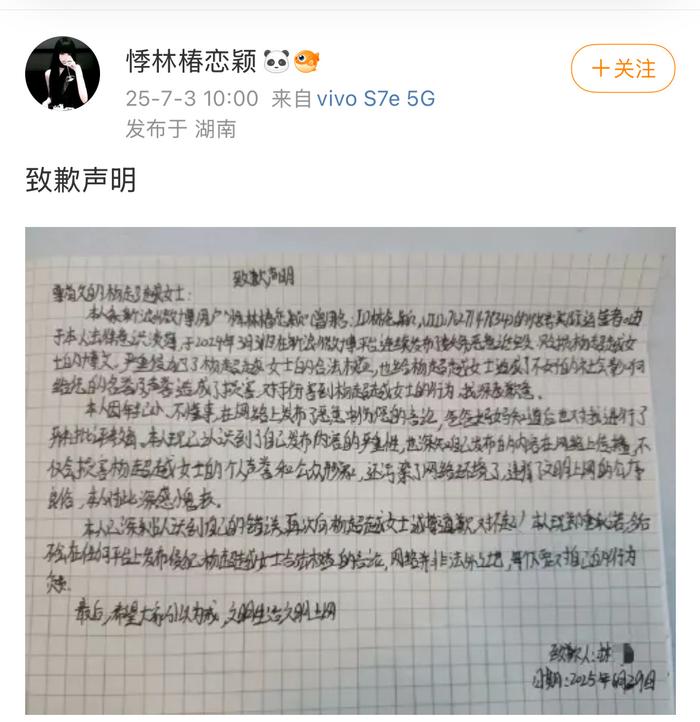 悸林椿恋颖🐼🐡
＋关注
25-7-3 10:00 来自 vivo S7e 5G
发布于 湖南
致歉声明
致歉声明
尊敬的杨超越女士：
本人系新浪微博用户"悸林椿恋颖"(曾用名：ID林恋颖，UID:7627147834)的账号实际运营者。由
于本人法律意识淡薄，于2024年3月31日在新浪微博平台连续发布
女士的博文，严重侵犯了杨超越女士的合法权益，也给杨超越女士造成了不好的社会影响
给您的名誉声誉造成了损害，对于伤害到杨超越女士的行为，我深表歉意。
本人因年纪小，不懂事，在网络上发布了恶意中伤您的言论，爸爸妈妈知道后也对我进行了
批评教育。本人现已认识到了自己发布内容的严重性，也深知自己发布的内容在网络上传播，不
仅会损害杨超越女士的个人声誉和公众形象，还污染了网络环境，违背了文明上网的公序
良俗，本人对此深感愧疚。
本人已深刻认识到自己的错误，再次向杨超越女士诚挚道歉，对不起！本人现郑重承诺今后
不会在任何平台上发布侵犯杨超越女士合法权益的言论，网络并非法外之地，每个人要对自己的行为
负责。
最后，希望大家引以为戒，文明生活文明上网
致歉人：林
日期：2025年6月29日